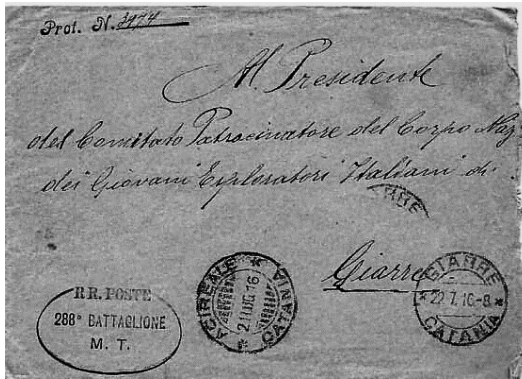 Prot. N. 3974
Al Presidente
del Comitato Patrocinatore del Corpo Naz.
dei Giovani Esploratori Italiani di
GIARRE
Giarre
R R. POSTE
288° BATTAGLIONE
M. T.
* ACIREALE *
21 LUG 16
CATANIA
GIARRE
* 22.7.16-8 *
CATANIA